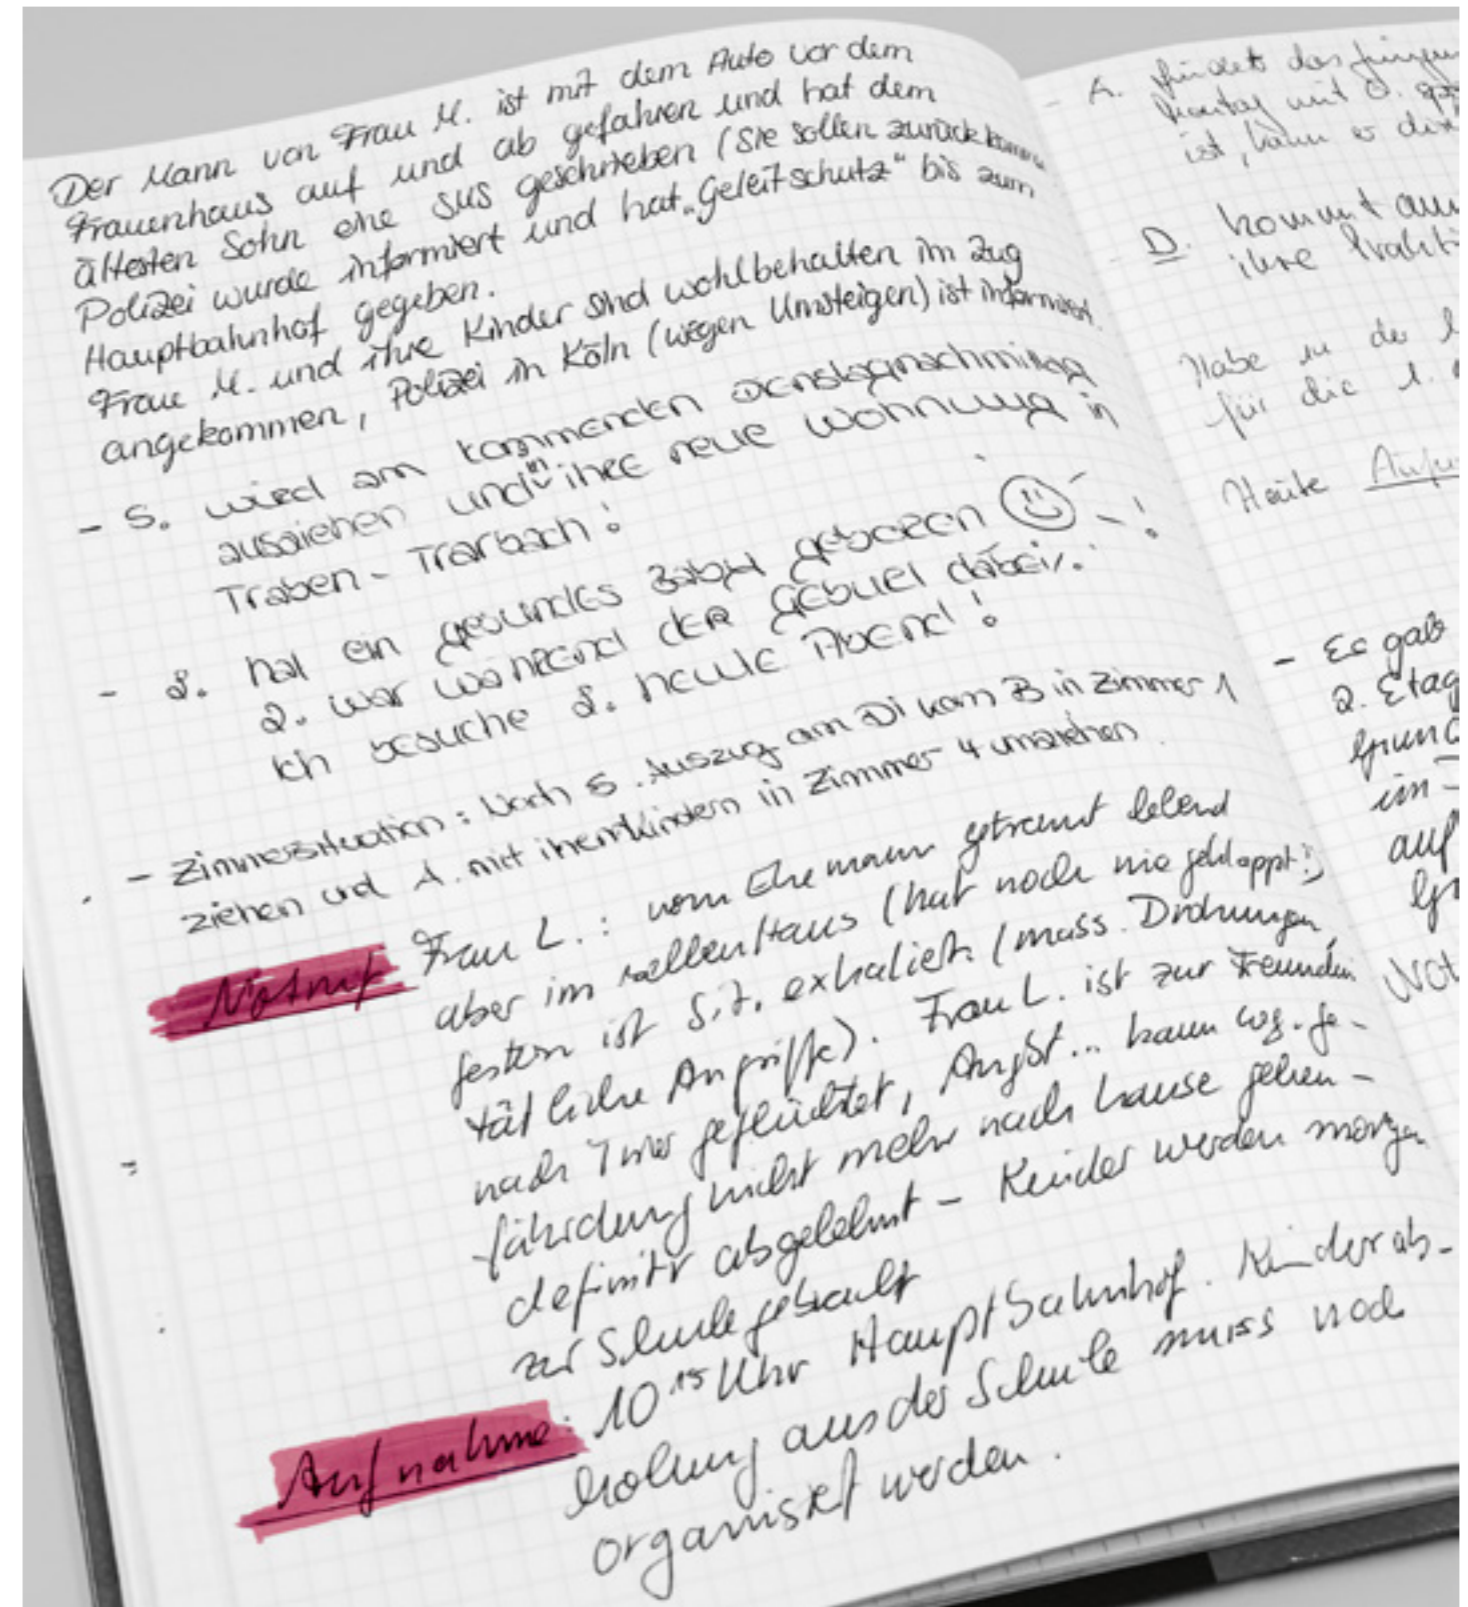 Der Mann von Frau M. ist mit dem Auto vor dem
Frauenhaus auf und ab gefahren und hat dem
ältesten Sohn eine SMS geschrieben (Sie sollen zurückkommen
Polizei wurde informiert und hat „Geleitschutz“ bis zum
Hauptbahnhof gegeben.
Frau M. und ihre Kinder sind wohlbehalten im Zug
angekommen, Polizei in Köln (wegen Umsteigen) ist informiert.
- S. wird am kommenden Dienstagnachmittag
ausziehen und in ihre neue Wohnung in
Traben-Trarbach!
- J. hat ein gesundes Baby geboren ☺ - !
2. war während der Geburt dabei!
Ich besuche J. heute Abend!
- Zimmersituation: Nach S. Auszug am Di kann B in Zimmer 1
ziehen und A. mit ihren Kindern in Zimmer 4 umziehen.
Notruf Frau L.: vom Ehemann getrennt lebend
aber im selben Haus (hat noch nie geklappt!)
gestern ist Sit. eskaliert (mass. Drohungen,
tätliche Angriffe). Frau L. ist zur Freundin
nach Trier geflüchtet, Angst... kann wg. Ge-
fährdung nicht mehr nach Hause gehen -
definitiv abgelehnt - Kinder werden morgen
zur Schule gebracht
Aufnahme: 10 15 Uhr Hauptbahnhof. Kinderab-
holung aus der Schule muss noch
organisiert werden.
- A. findet das
Montag mit
ist, kann er
D. kommt
ihre
Habe in der
für die 1.
Heute
- Es gab
2. Etag
im
auf